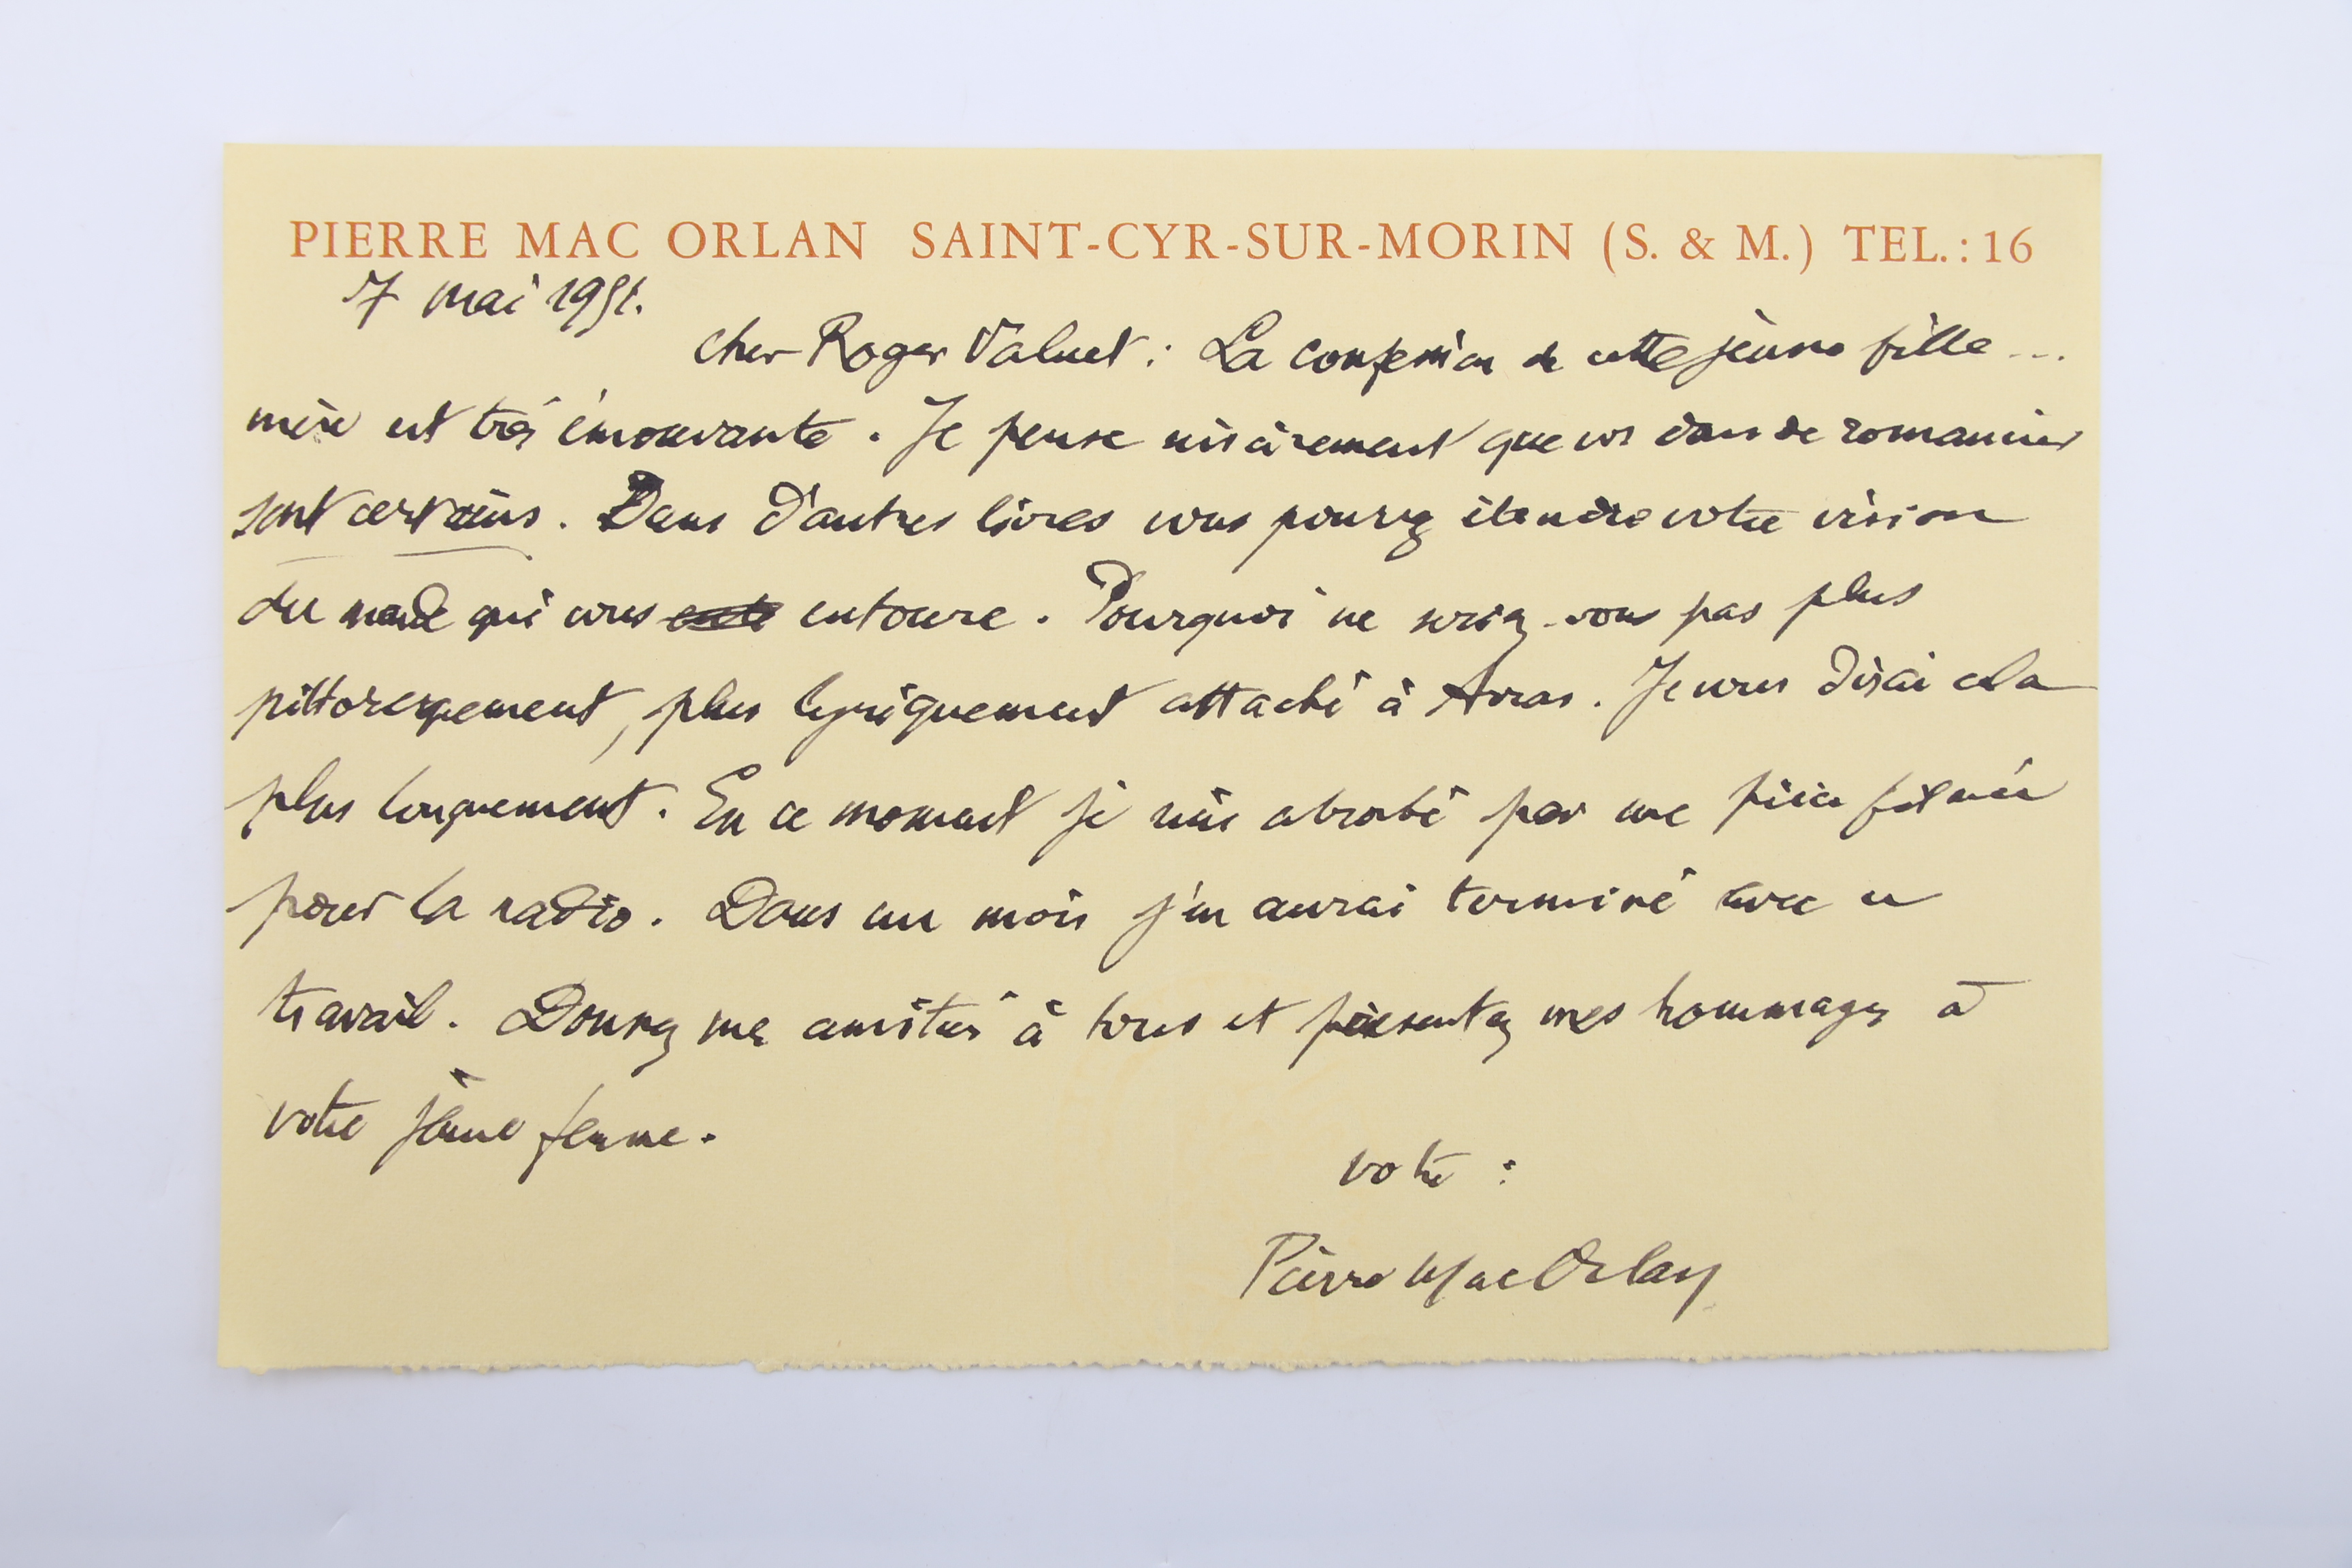 PIERRE MAC ORLAN SAINT-CYR-SUR-MORIN (S. & M.) TEL.: 16
7 mai 1951.
cher Roger Valuet : La confession de cette jeune fille ...
mère est très émouvante. Je pense sincèrement que vos dons de romancier
sont certains. Dans d'autres livres vous pourrez étendre votre vision
du monde qui vous entoure. Pourquoi ne seriez-vous pas plus
pittoresquement, plus lyriquement attaché à Arras. Je vous dirai cela
plus longuement. En ce moment je suis absorbé par une pièce
pour la radio. Dans un mois j'en aurai terminé avec ce
travail. Donnez mes amitiés à tous et présentez mes hommages à
votre jeune femme.
votre :
Pierre Mac Orlan